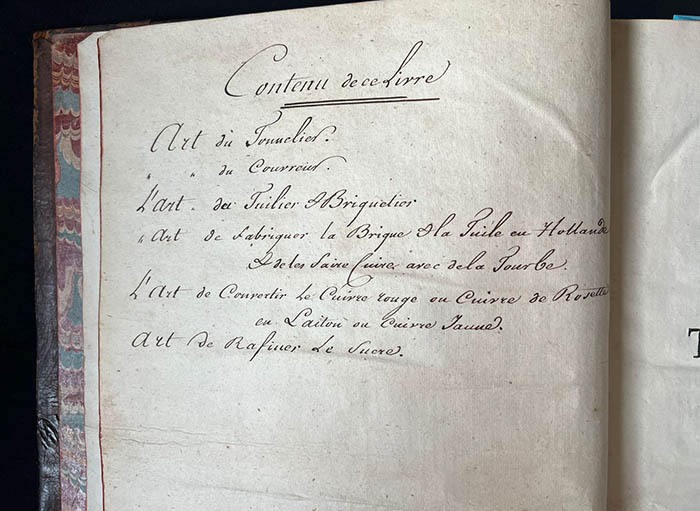 Contenu de ce Livre
Art du Tonnelier.
" " du Couvreur.
L'art du Tuilier & Briquetier
" Art de fabriquer la Brique & la Tuile en Hollande
& de les faire Cuire avec de la Tourbe.
L'Art de Convertir Le Cuivre rouge ou Cuivre de Rosette
en Laiton ou Cuivre Jaune.
Art de Rafiner Le Sucre.
T